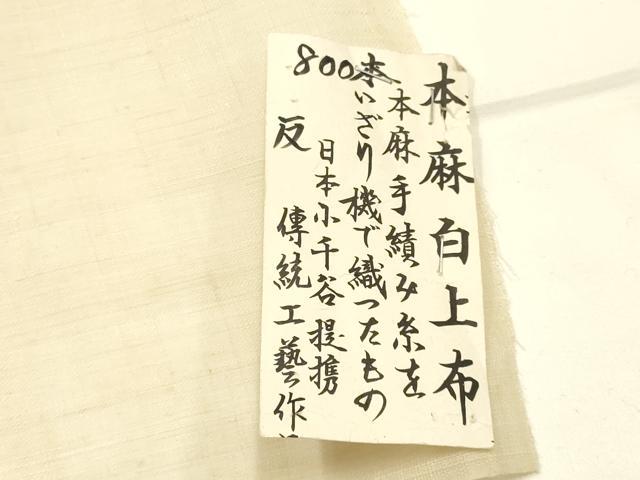 本麻白上布
本麻手績み糸を
いざり機で織つたもの
日本小千谷提携
傳統工藝作
800
反